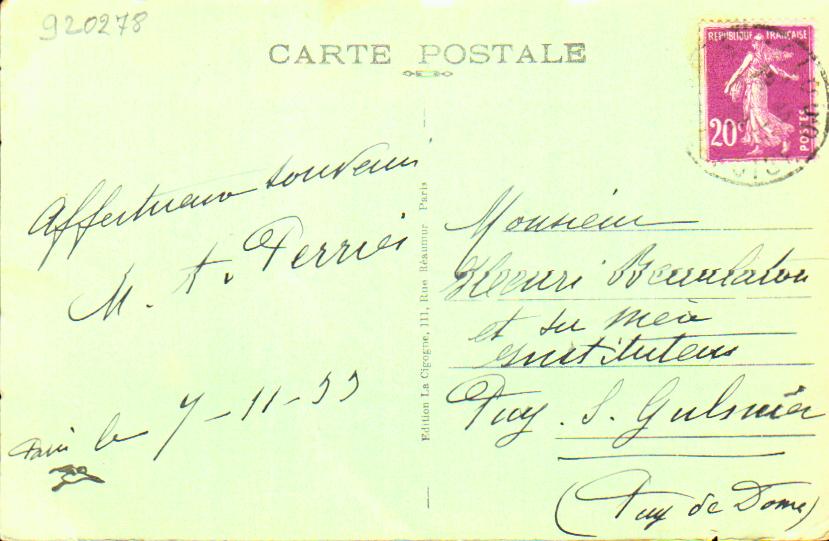 920278
CARTE POSTALE
REPUBLIQUE FRANÇAISE
20c
POSTES
Affectueux souvenir
M. A. Perrier
Paris le 7-11-33
Edition La Cigogne, 111, Rue Réaumur Paris
Monsieur
Henri
et sa mère
Instituteur
Puy. S. Gulmier
(Puy de Dome)